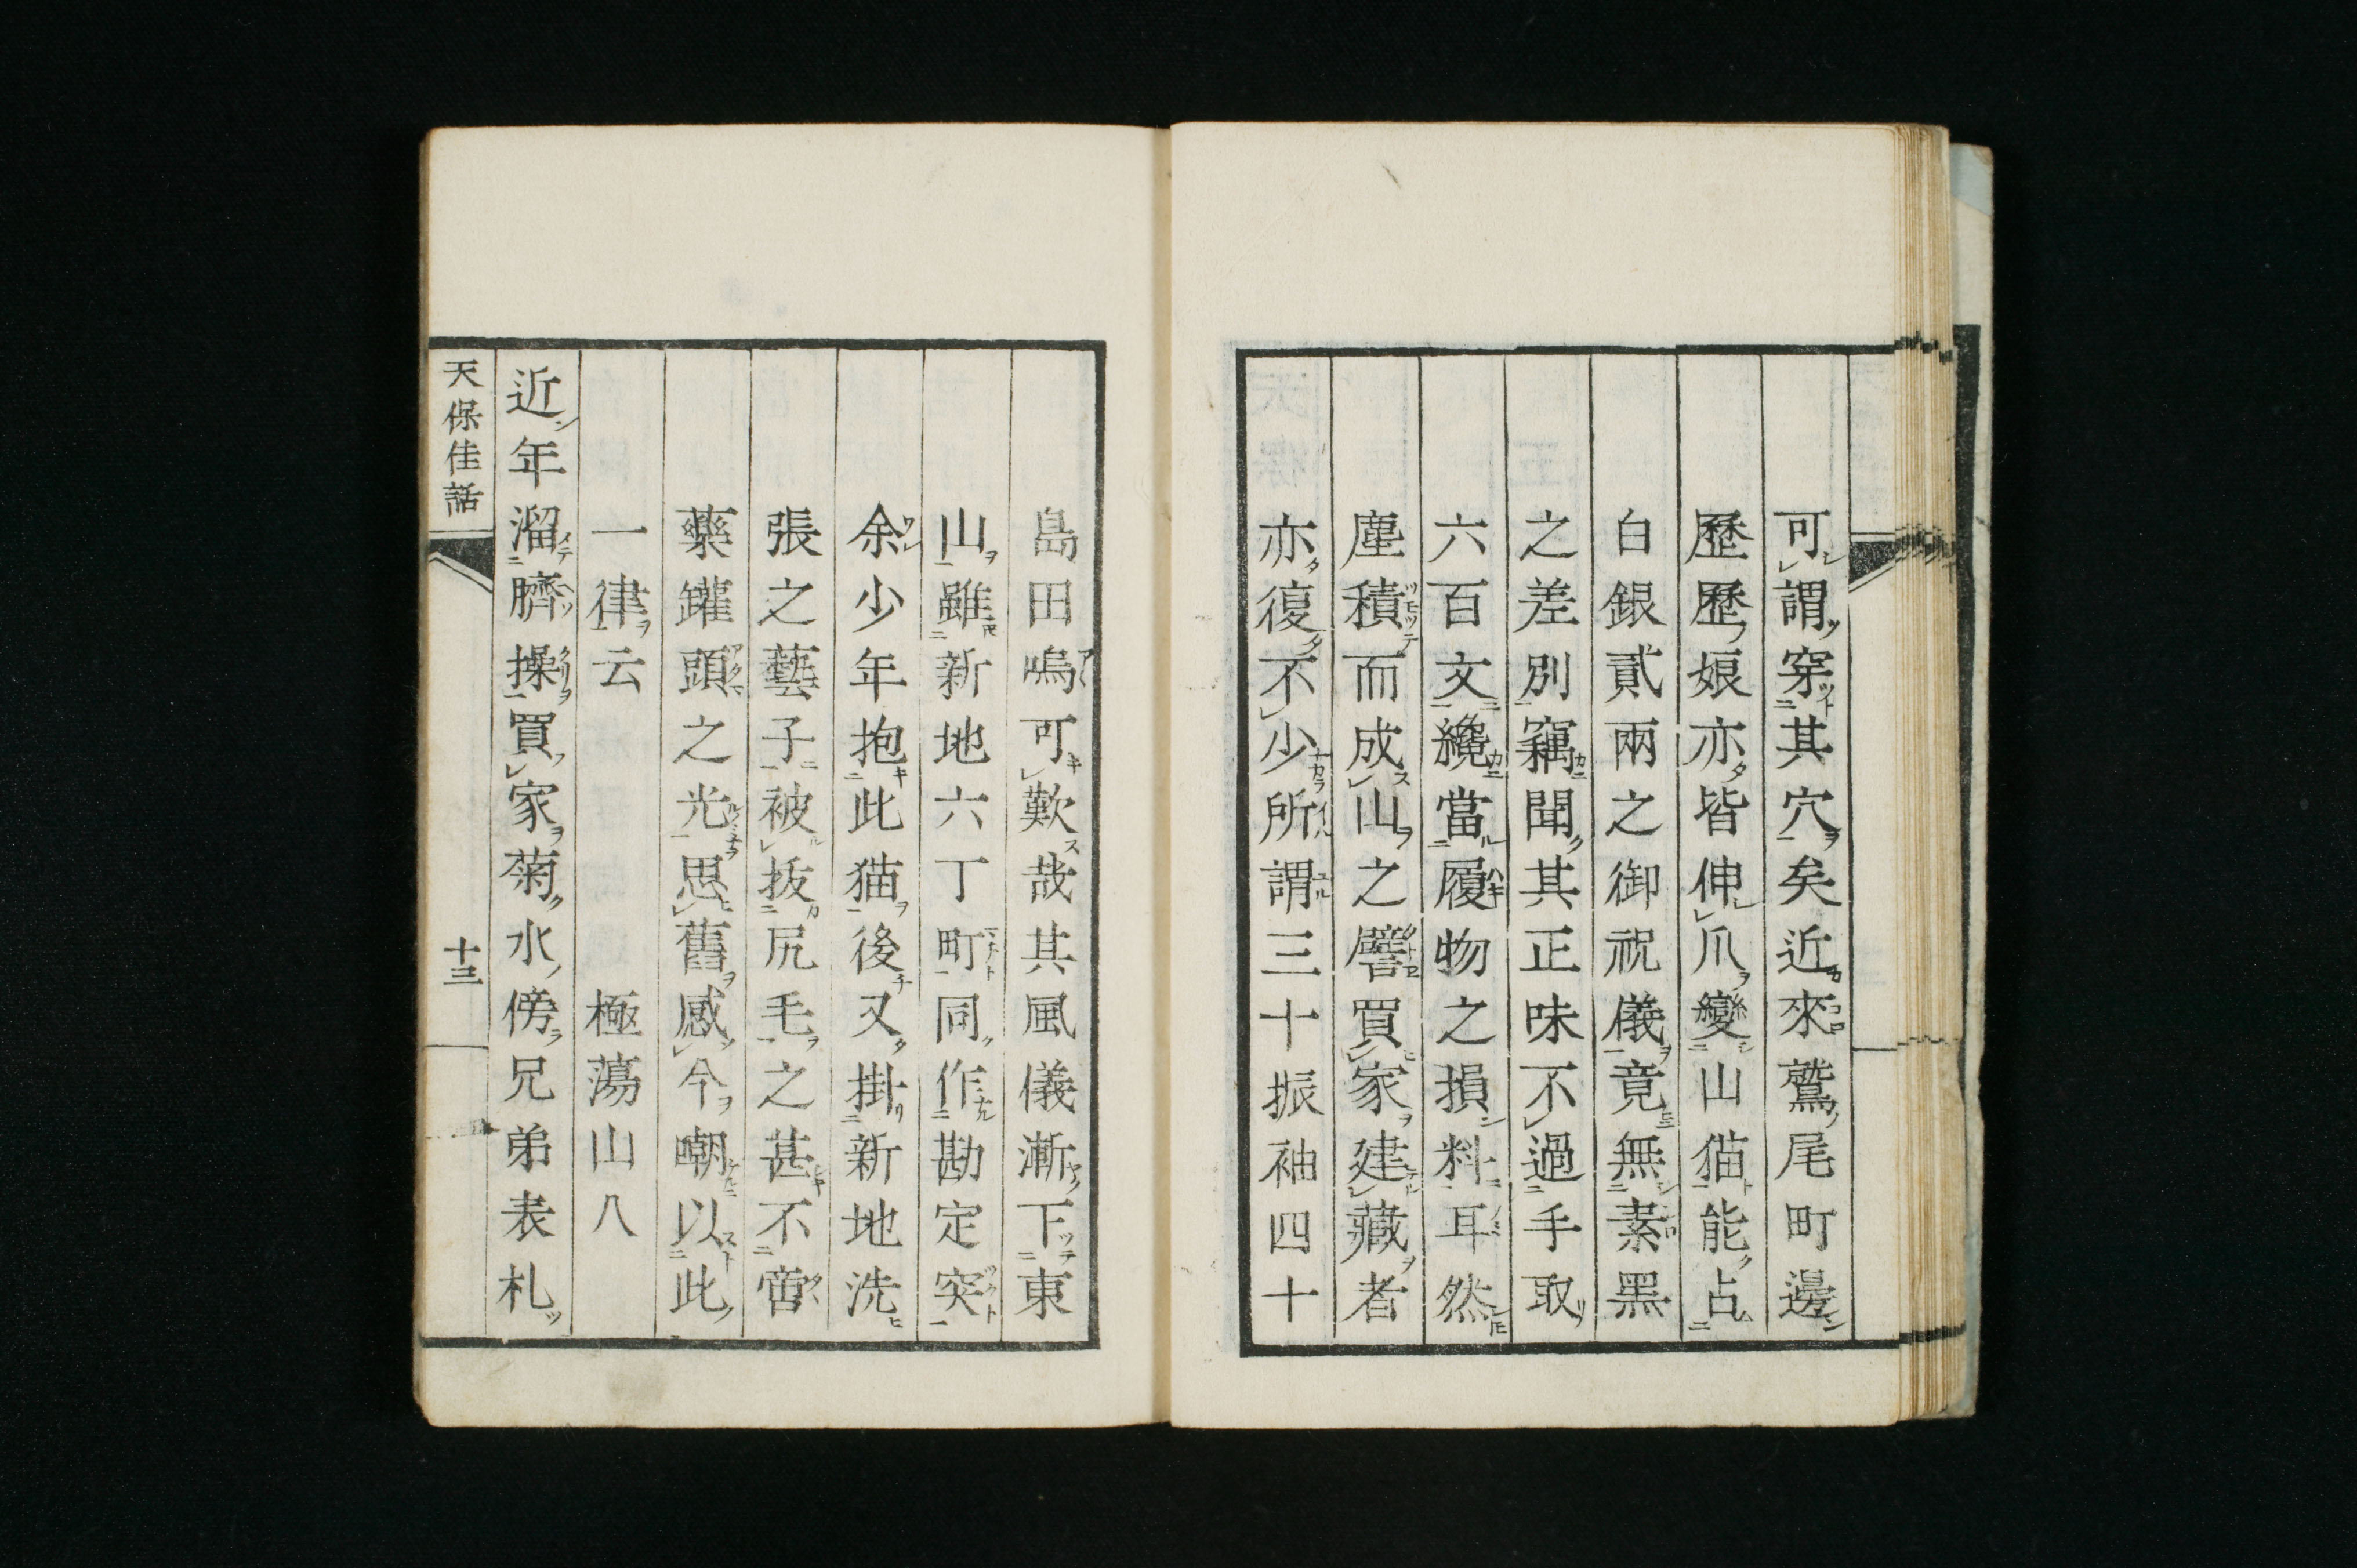 可謂穿其穴矣近來鷲尾町邊
歷歷娘亦皆伸爪變山猫能占
白銀貳兩之御祝儀竟無素黑
之差別竊聞其正味不過手取
六百文纔當履物之損料耳然
塵積而成山之譬買家建藏者
亦復不少所謂三十振袖四十
島田嗚可歎哉其風儀漸下東
山雖新地六丁町同作勘定突
余少年抱此猫後又掛新地洗
張之藝子被拔尻毛之甚不啻
藥罐頭之光思舊感今嘲以此
一律云　極蕩山八
近年溜臍操買家菊水傍兄弟表札
天保佳話
十三